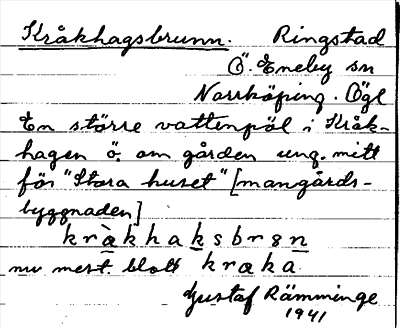 Kråkhagsbrunn. Ringstad
Ö. Eneby sn
Norrköping. Ögl
En större vattenpöl i Kråk-
hagen ö. om gården ung. mitt
för "Stora huset" [mangårds-
byggnaden]
kràkhaksbrsn
nu mest. blott kræka
Gustaf Rämminge
1941